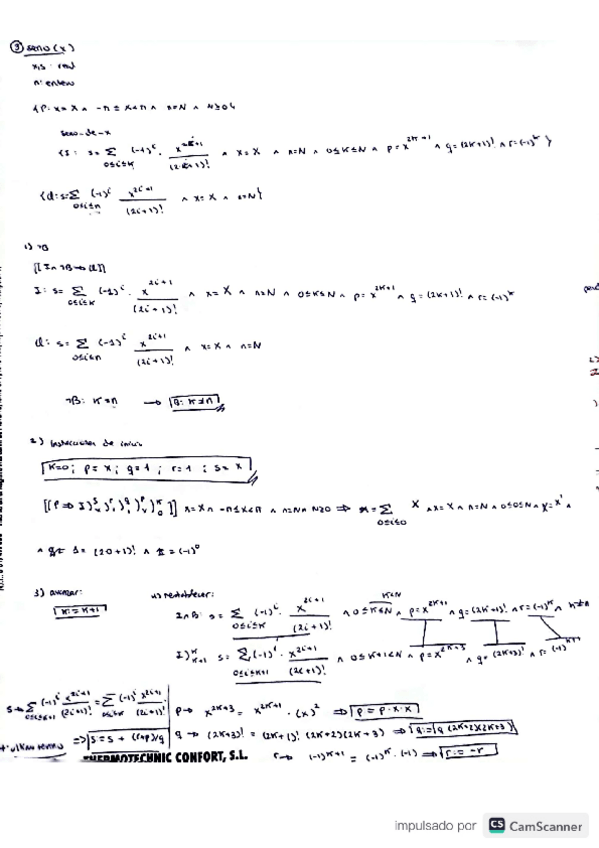 ⑨ seno(x)
x,s: real
n: entero
{P: x=X ∧ -π≤x<π ∧ n=N ∧ N≥0}
seno-de-x
{I: s=∑ 0≤i≤k (-1)^i · x^(2i+1)/(2i+1)! ∧ x=X ∧ n=N ∧ 0≤k≤N ∧ p=x^(2k+1) ∧ q=(2k+1)! ∧ r=(-1)^k}
{Q: s=∑ 0≤i≤n (-1)^i x^(2i+1)/(2i+1)! ∧ x=X ∧ n=N}
1) ¬B
[[I ∧ ¬B → Q]]
I: s=∑ 0≤i≤k (-1)^i · x^(2i+1)/(2i+1)! ∧ x=X ∧ n=N ∧ 0≤k≤N ∧ p=x^(2k+1) ∧ q=(2k+1)! ∧ r=(-1)^k
Q: s=∑ 0≤i≤n (-1)^i x^(2i+1)/(2i+1)! ∧ x=X ∧ n=N
¬B: k=n → B: k≠n
2) Instrucciones de inicio
k=0; p=x; q=1; r=1; s=x
3) avanzar:
k:=k+1
u) restablecer:
I∧B: s=∑ 0≤i≤k (-1)^i · x^(2i+1)/(2i+1)! ∧ 0≤k≤N ∧ p=x^(2k+1) ∧ q=(2k+1)! ∧ r=(-1)^k ∧ k≠n
k<N
I)^k_(k+1) s=∑ 0≤i≤k+1 (-1)^i · x^(2i+1)/(2i+1)! ∧ 0≤k+1≤N ∧ p=x^(2k+3) ∧ q=(2k+3)! ∧ r=(-1)^(k+1)
s→∑ 0≤i≤k+1 (-1)^i x^(2i+1)/(2i+1)! = ∑ 0≤i≤k (-1)^i x^(2i+1)/(2i+1)!
p → x^(2k+3) = x^(2k+1) · (x)^2 ⇒ p=p·x·x
q → (2k+3)! = (2k+1)! (2k+2)(2k+3) ⇒ q:=q(2k+2)(2k+3)
⇒ s=s+(r*p)/q
r → (-1)^(k+1) = (-1)^k · (-1) ⇒ r:=-r
THERMOTECHNIC CONFORT, S.L.
impulsado por CS CamScanner